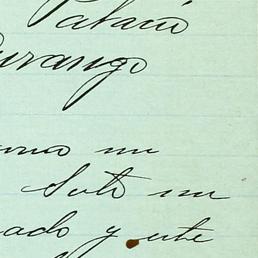 Palacio
Durango
mi
Soto mi
ado y este